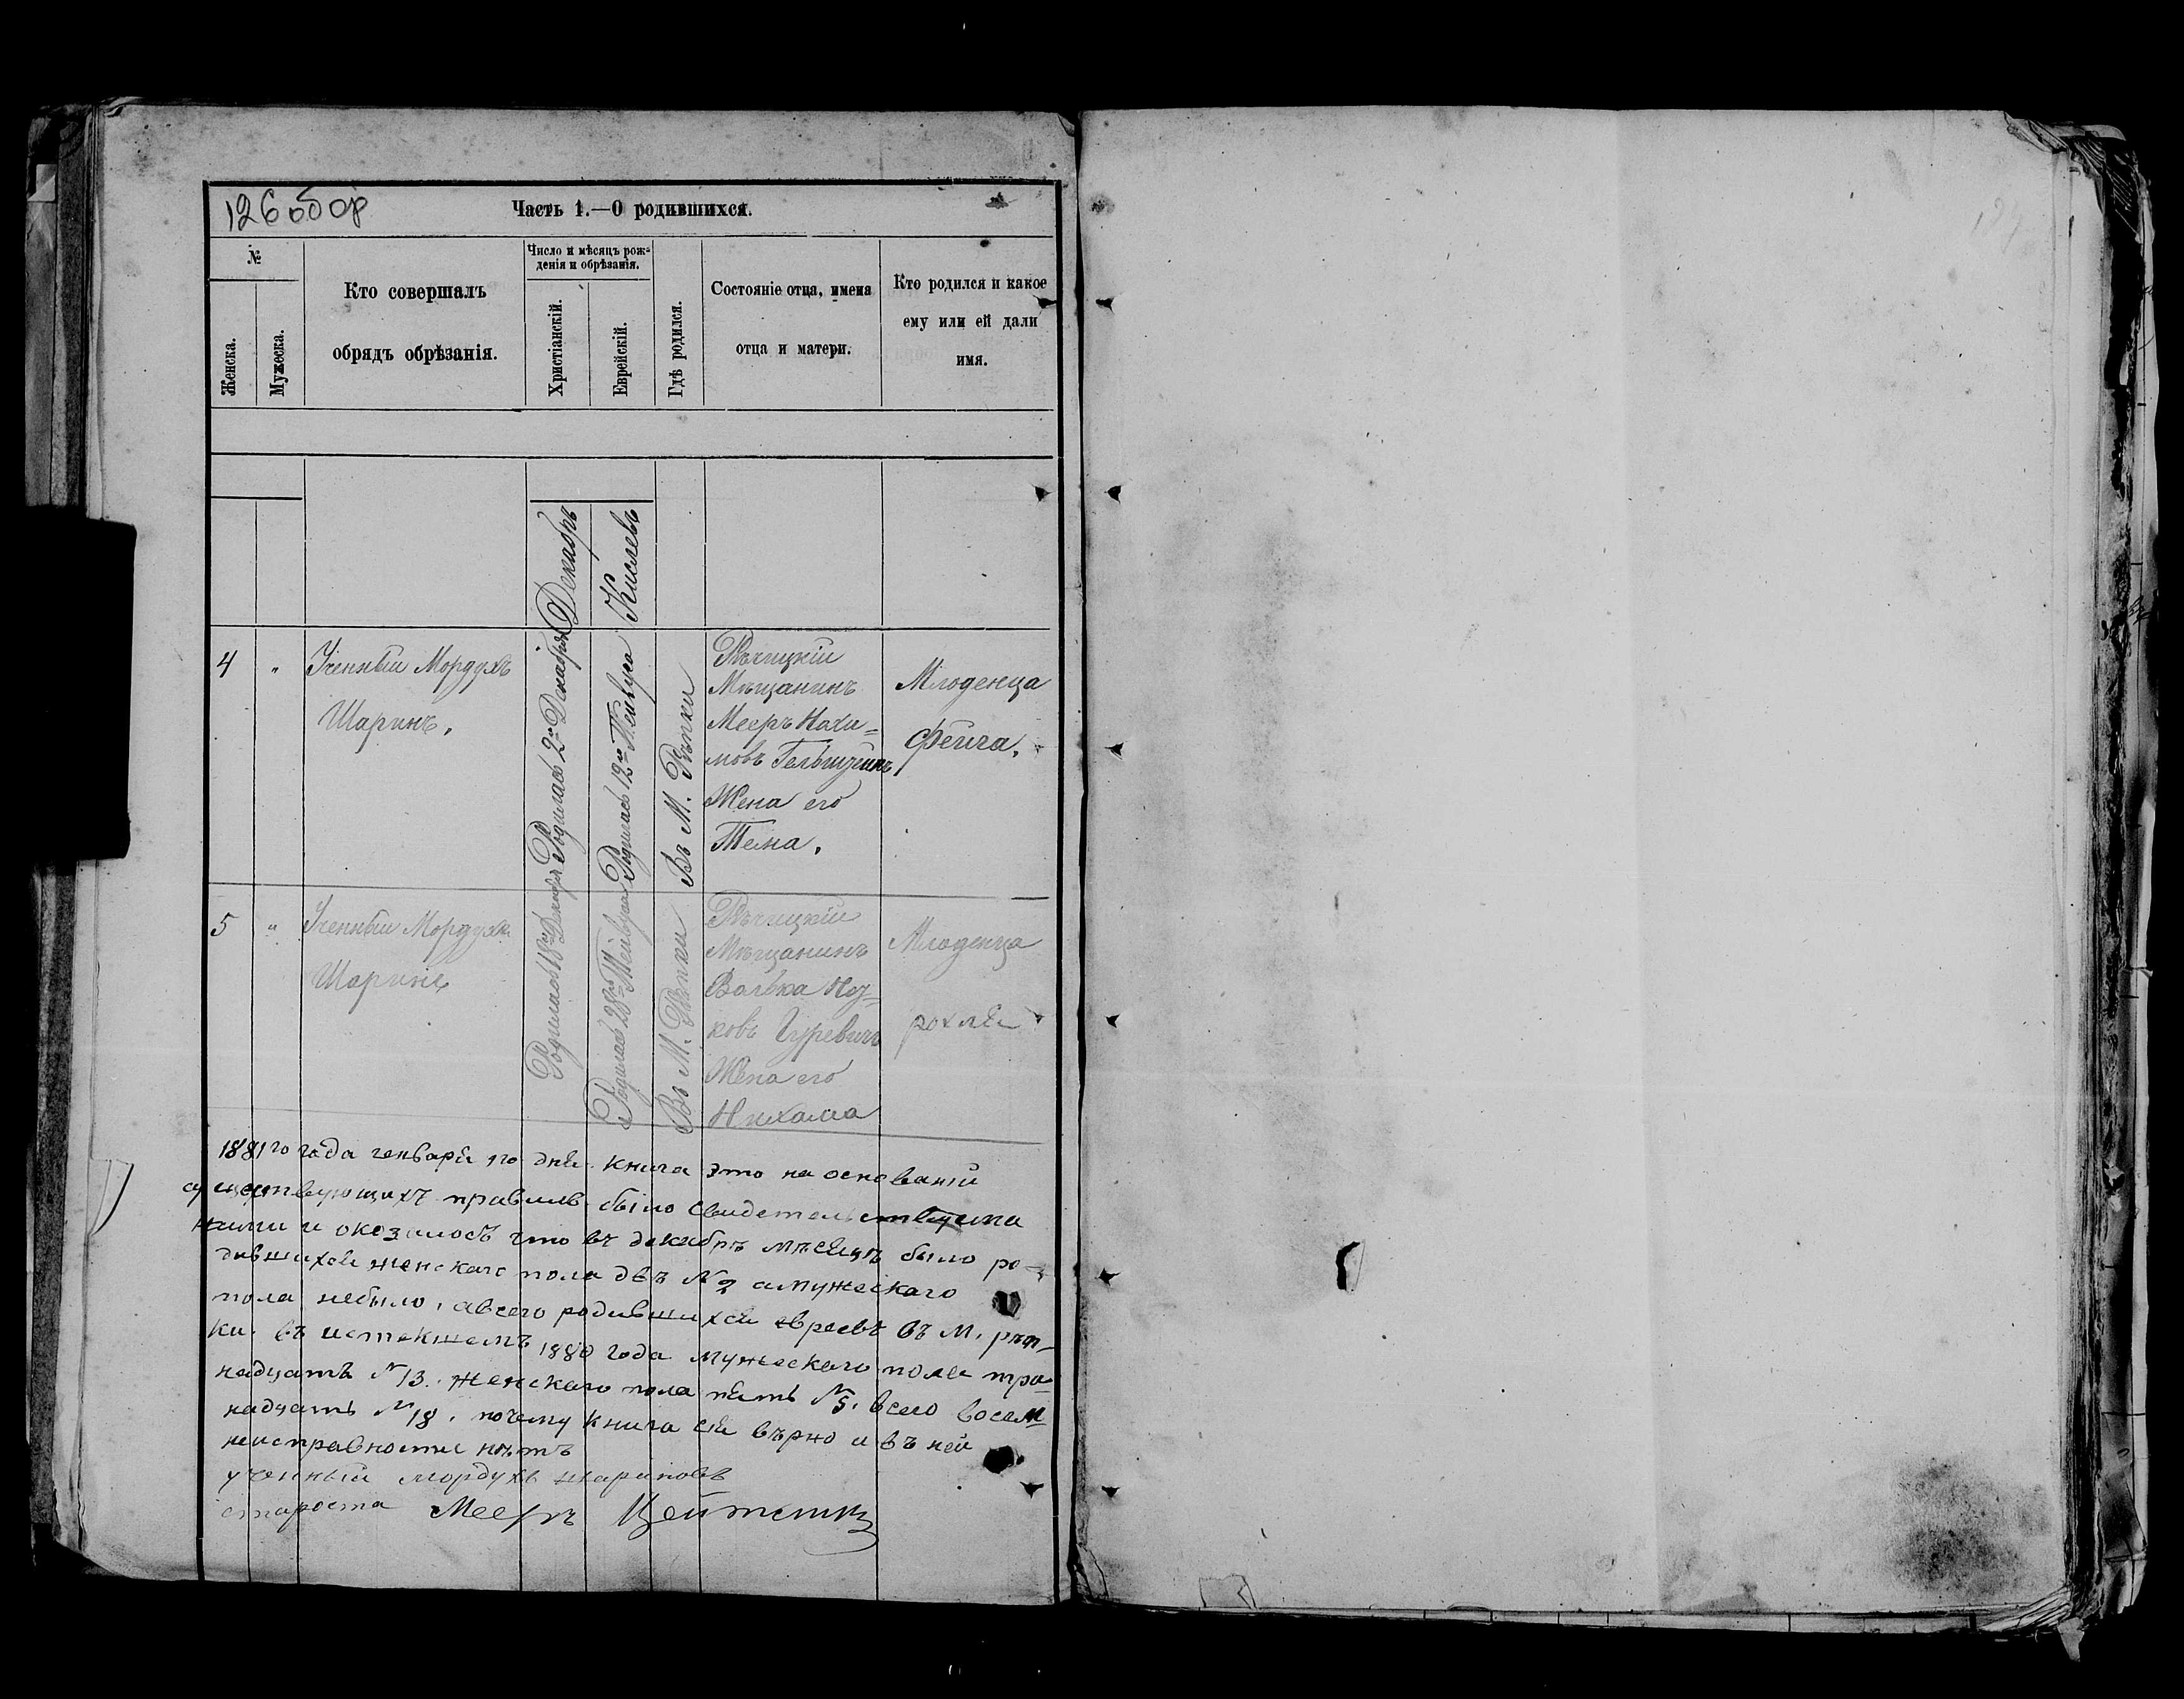 126 обор
Часть 1.—О родившихся.
№
Женска.
Мужеска.
Кто совершалъ
обрядъ обрѣзанія.
Число и мѣсяцъ рож-
денія и обрѣзанія.
Христіанскій.
Еврейскій.
Гдѣ родился.
Состояніе отца, имена
отца и матери.
Кто родился и какое
ему или ей дали
имя.
Декабрь
Кислевъ
4
"
Ученный Мордухъ
Шаринъ.
Родилась 2го Декабря
Родилась 12го
Въ М. Рѣпки
Рѣчицкій
Мѣщанинъ
Мееръ Нохи=
мовъ
Жена его
Младенца
Фейга.
5
"
Ученный Мордухъ
Шаринъ
Родилась 18го Декабря
Родилась 28го
Въ М. Рѣпки
Рѣчицкій
Мѣщанинъ
Волька
ковъ Гуревичъ
Жена его
Нихама
Младенца
рохля
1881го года генваря 1го дня книга это на основаній
существующихъ правилъ было свидетельствуема
нами и оказалось что въ декабрѣ мѣсяцѣ было ро-
дившихся женскаго пола двѣ №2 а мужескаго
пола небыло, а всего родившихся евреевъ въ М. рѣп-
ки въ истекшемъ 1880 года мужескаго пола три-
надцать №13. женскаго пола пять №5. всего восем-
надцать №18. почему книга сія вѣрно и въ ней
неисправности нѣтъ
ученный Мордухъ шариновъ
староста Мееръ Цейтлинъ